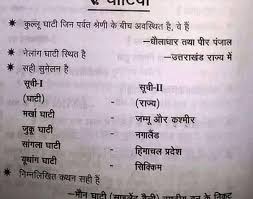 घाटियाँ
* कुल्लू घाटी जिन पर्वत श्रेणी के बीच अवस्थित है, वे हैं
–धौलाधार तथा पीर पंजाल
* नेलांग घाटी स्थित है –उत्तराखंड राज्य में
* सही सुमेलन है
सूची-I सूची-II
(घाटी) (राज्य)
मर्खा घाटी - जम्मू और कश्मीर
जुकू घाटी - नगालैंड
सांगला घाटी - हिमाचल प्रदेश
यूथांग घाटी - सिक्किम
* निम्नलिखित कथन सही हैं